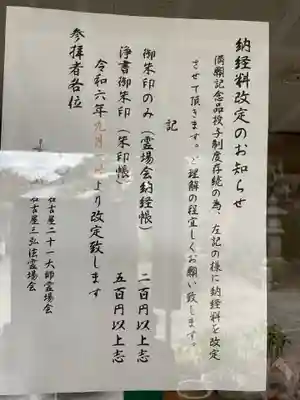 納経料改定のお知らせ
満願記念品授与制度存続の為、左記の様に納経料を改定
させて頂きます。ご理解の程宜しくお願い致します。
記
御朱印のみ（霊場会納経帳） 二百円以上志
浄書御朱印（朱印帳） 五百円以上志
令和六年九月 より改定致します
参拝者各位
名古屋二十一大師霊場会
名古屋三弘法霊場会